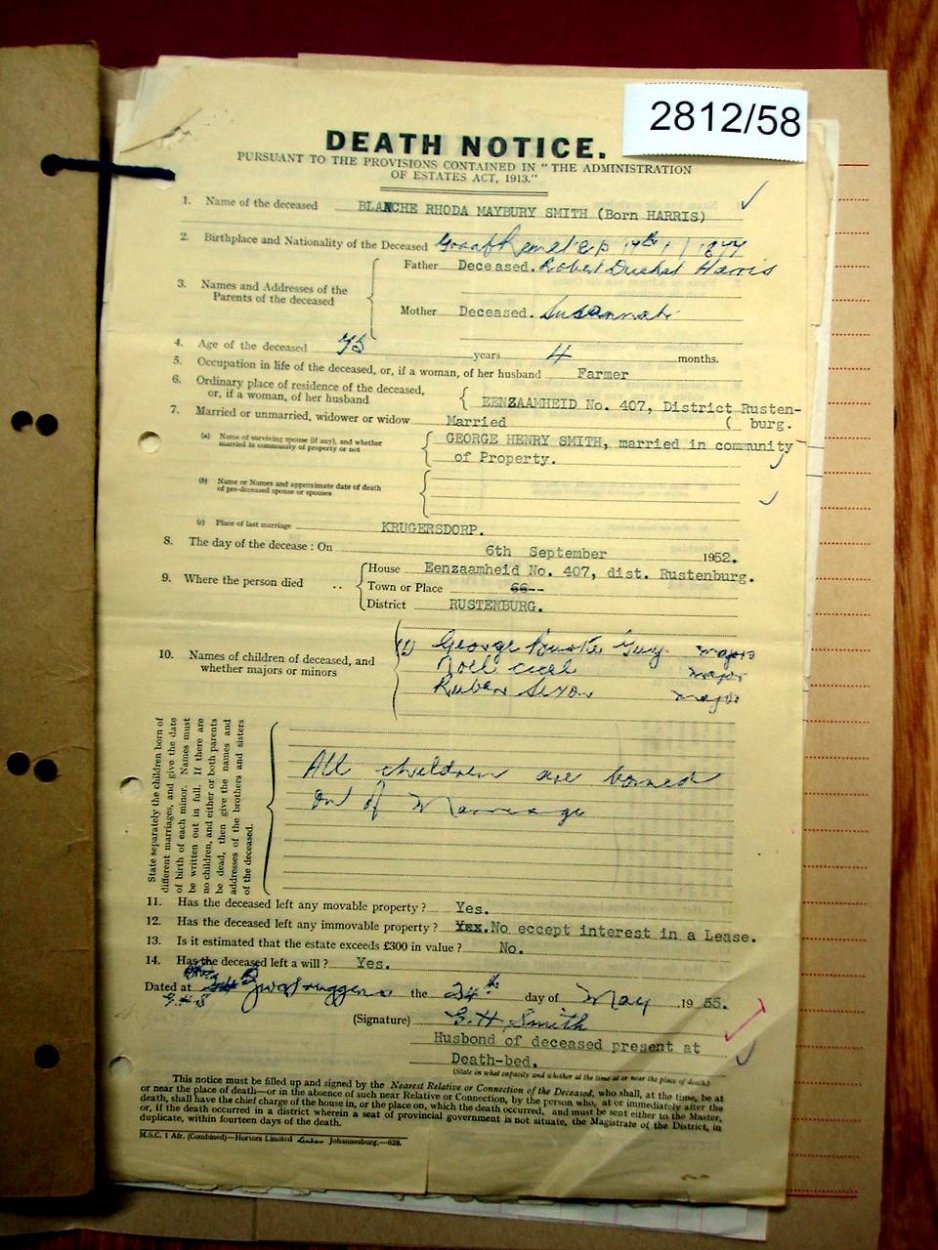 2812/58
DEATH NOTICE.
PURSUANT TO THE PROVISIONS CONTAINED IN "THE ADMINISTRATION
OF ESTATES ACT, 1913."
1. Name of the deceased BLANCHE RHODA MAYBURY SMITH (Born HARRIS)
2. Birthplace and Nationality of the Deceased Graaf Reinet 17th 1877
3. Names and Addresses of the Parents of the deceased
Father Deceased. Robert Harris
Mother Deceased. Susannah
4. Age of the deceased 75 years 4 months.
5. Occupation in life of the deceased, or, if a woman, of her husband Farmer
6. Ordinary place of residence of the deceased, or, if a woman, of her husband { EENZAAMHEID No. 407, District Rusten-
( burg.
7. Married or unmarried, widower or widow Married
(a) Name of surviving spouse (if any), and whether married in community of property or not { GEORGE HENRY SMITH, married in community
of Property.
(b) Name or Names and approximate date of death of pre-deceased spouse or spouses
(c) Place of last marriage KRUGERSDORP.
8. The day of the decease : On 6th September 1952.
9. Where the person died .. { House Eenzaamheid No. 407, dist. Rustenburg.
Town or Place 66--
District RUSTENBURG.
10. Names of children of deceased, and whether majors or minors
(1) George Guy major
Noel Cecil major
Ruben major
State separately the children born of
different marriages, and give the date
of birth of each minor. Names must
be written out in full. If there are
no children, and either or both parents
be dead, then give the names and
addresses of the brothers and sisters
of the deceased.
All children are borned
out of Marriage
11. Has the deceased left any movable property ? Yes.
12. Has the deceased left any immovable property ? Yes. No eccept interest in a Lease.
13. Is it estimated that the estate exceeds £300 in value ? No.
14. Has the deceased left a will ? Yes.
Dated at Swartruggens the 24th day of May 1955.
G.H.S
(Signature) G.H Smith
Husbond of deceased present at
Death-bed.
(State in what capacity and whether at the time at or near the place of death.)
This notice must be filled up and signed by the Nearest Relative or Connection of the Deceased, who shall, at the time, be at
or near the place of death—or in the absence of such near Relative or Connection, by the person who, at or immediately after the
death, shall have the chief charge of the house in, or the place on, which the death occurred, and must be sent either to the Master,
or, if the death occurred in a district wherein a seat of provincial government is not situate, the Magistrate of the District, in
duplicate, within fourteen days of the death.
H.S.C. 1 Afr. (Combined)—Hortors Limited Johannesburg.—628.